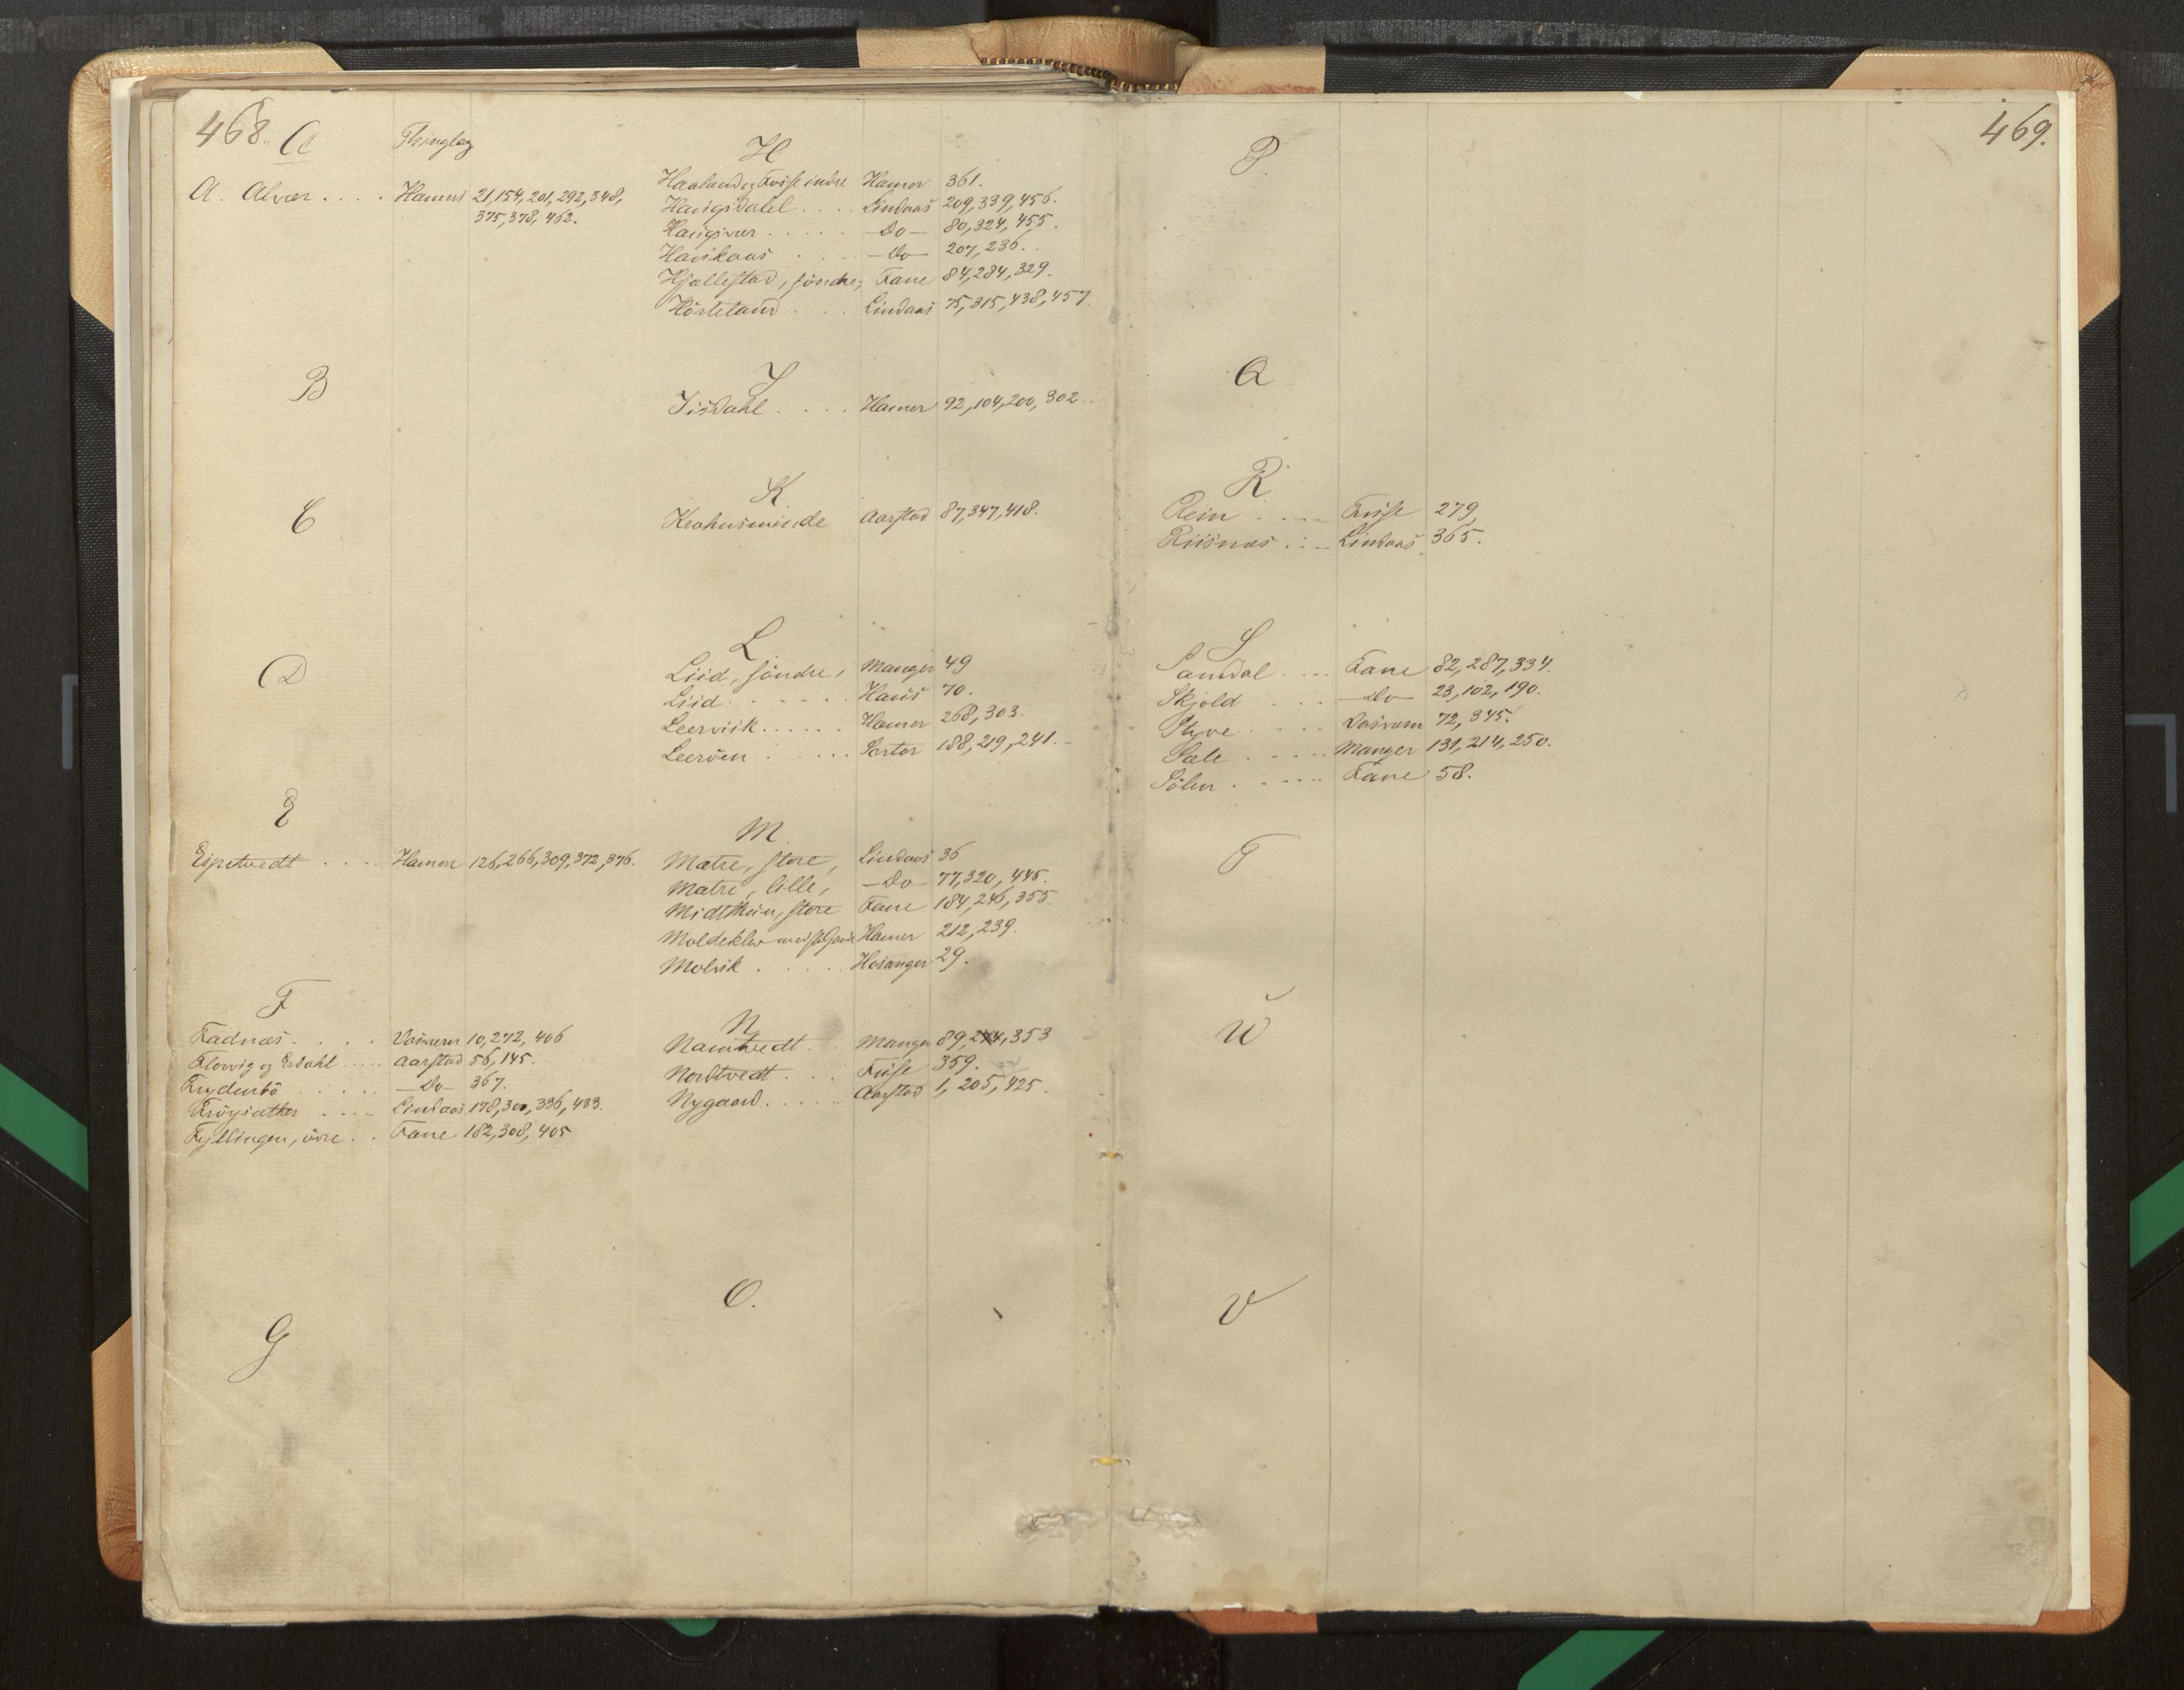 468.
A
Thinglag
A. Alver . . . . Hamre 21, 154, 201, 292, 348,
375, 378, 462.
B
C
D
E
Espetvedt . . . . Hamer 126, 266, 309, 372, 376.
F
Fadnæs . . . . Vosvum 10, 272, 406
Flovvig og Erdahl . . . . Aarstad 56, 145.
Frydenbö . . . . —Do— 367.
Fröysæther . . . . Lindaas 178, 300, 336, 433.
Fyllingen, övre . . Fane 182, 308, 405
G
H
Haaland og Fosse indre Hamer 361.
Haugsdalel . . . . Lindaas 209, 339, 456.
Haugsvær . . . . . —Do— 80, 324, 455.
Haukaas . . . . —Do— 207, 236.
Hjellestad, söndre, Fane 84, 284, 329.
Hörteland . . . Lindaas 75, 315, 438, 457.
I
Isdahl . . . . Hamer 92, 104, 200, 302.
K
Krohnsminde Aarstad 87, 347, 418.
L
Liid, söndre, Manger 49
Liid . . . . . . Haus 70.
Leerviik . . . . . . Hamer 268, 303.
Leeröen . . . . . . Sartor 188, 219, 241.
M.
Matre, store, Lindaas 36
Matre, lille, —Do— 77, 320, 445.
Midtthun, store Fane 184, 246, 355.
Moldeklev Hamer 212, 239.
Molvik . . . . . Hosanger 29.
N
Namtvedt . . Manger 89, 353
Nordtvedt . . . Fuse 359.
Nygaard . . . . . Aarstad 1, 205, 425.
O.
469.
P.
Q
R
Rein . . . . Fuse 279,
Riisnæs . . . Lindaas 365.
S
Sandal . . . . Fane 82, 287, 334.
Skjold . . . —Do— 23, 102, 190.
Styve . . . . Vosvum 72, 345.
Sæle . . . . . Manger 131, 214, 250.
Sölen . . . . . Fane 58.
T
U
V